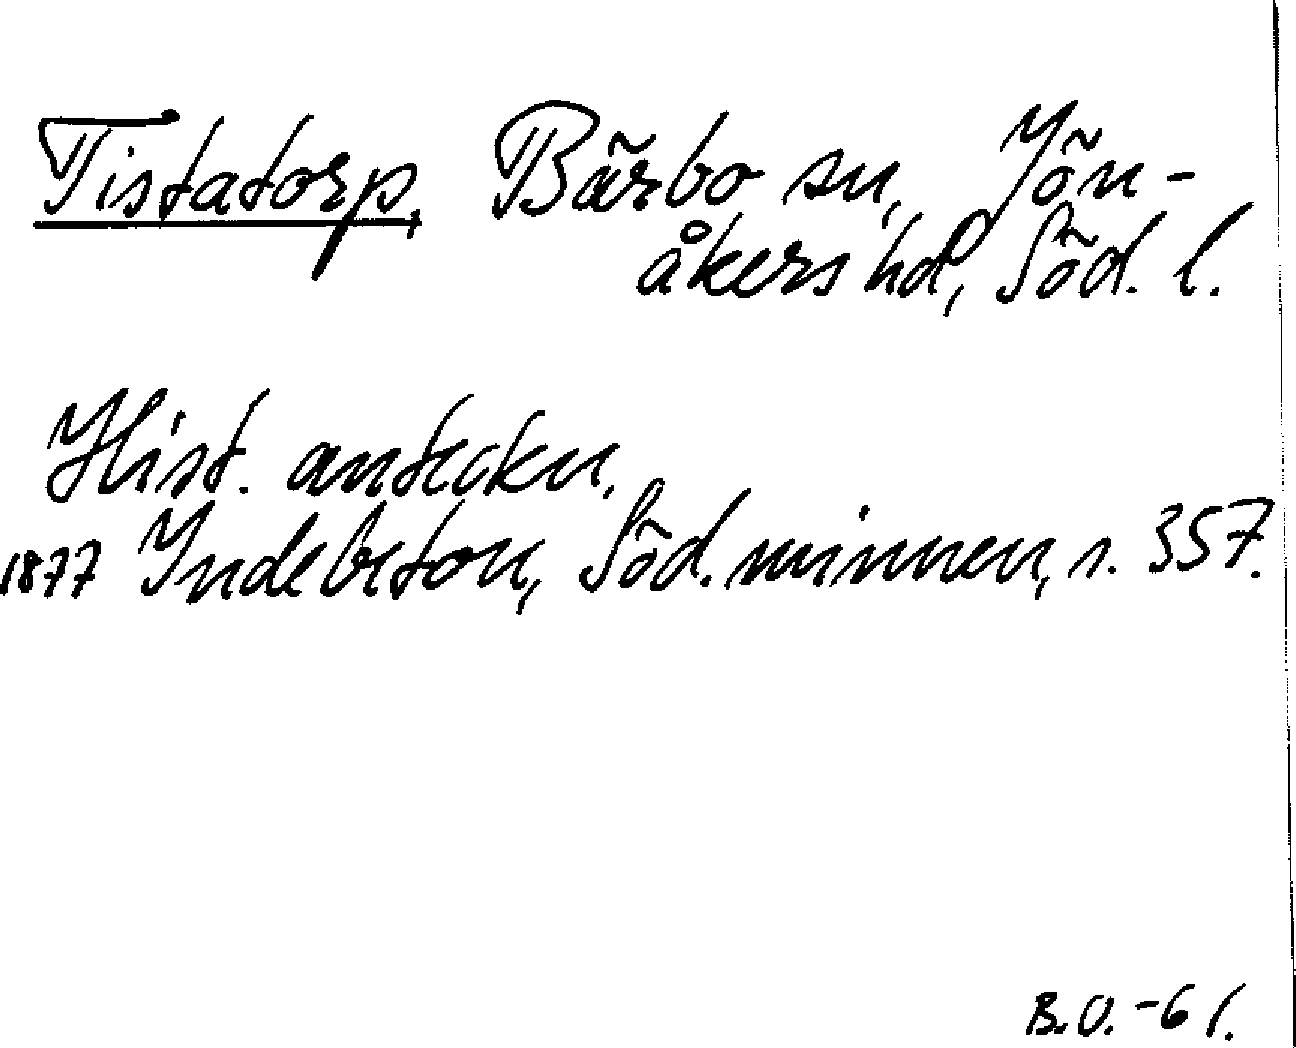 Tistatorp, Bärbo sn, Jön-
åkers hd, Söd. l.
Hist. anteckn.
1877 Indebetou, Söd. minnen, s. 357.
B.O. -61.